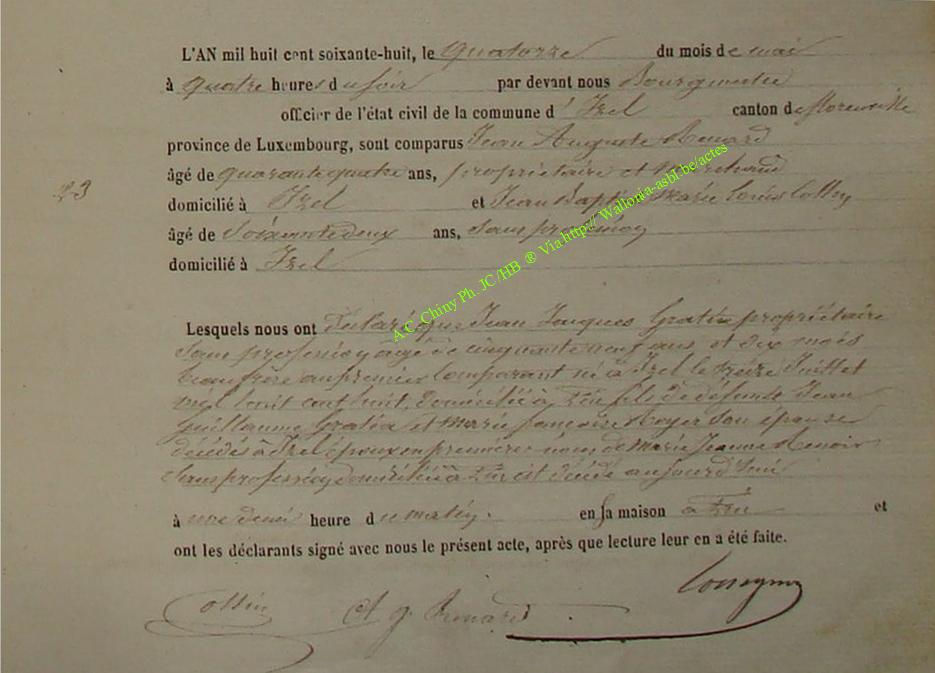 L'AN mil huit cent soixante-huit, le quatorze du mois de mai
à quatre heures du soir par devant nous Bourgmestre
officier de l'état civil de la commune d'Izel canton de florenville
province de Luxembourg, sont comparus Jean Auguste Renard
23
âgé de quarante quatre ans, propriétaire et Marchand
domicilié à Izel et Jean Bapte Marie Louis
âgé de Soixante deux ans, Sans profession
domicilié à Izel
Lesquels nous ont Déclaré que Jean Jacques Gratia propriétaire
Sans profession agé de cinquante neuf ans et dix mois
beau frère au premier Comparant né à Izel le treize Juillet
mil huit cent huit, domicilié à fils de défunts Jean
Guillaume Gratia et Marie françoise Son épouse
décédés à Izel époux en premières de Marie Jeanne
Sans profession domiciliée à est décédé aujourd'hui
à une demi heure du matin. en sa maison à et
ont les déclarants signé avec nous le présent acte, après que lecture leur en a été faite.
A g Renard
A.C. Chiny Ph. JC /HB ® Via http// Wallonia-asbl.be/actes